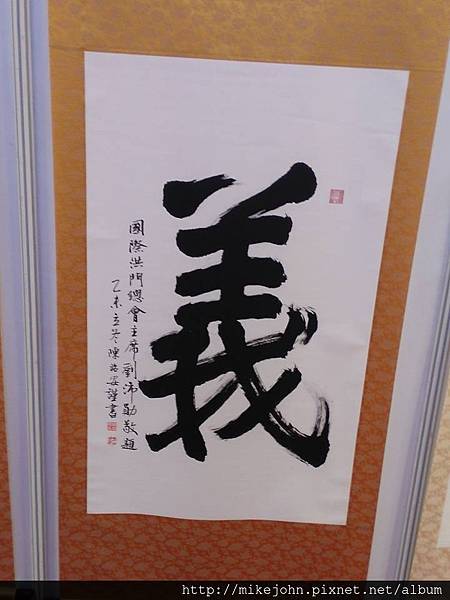 義
國際洪門總會主席劉沛勛敬題
乙未立冬陳謹書
http://mikejohn.pixnet.net/album